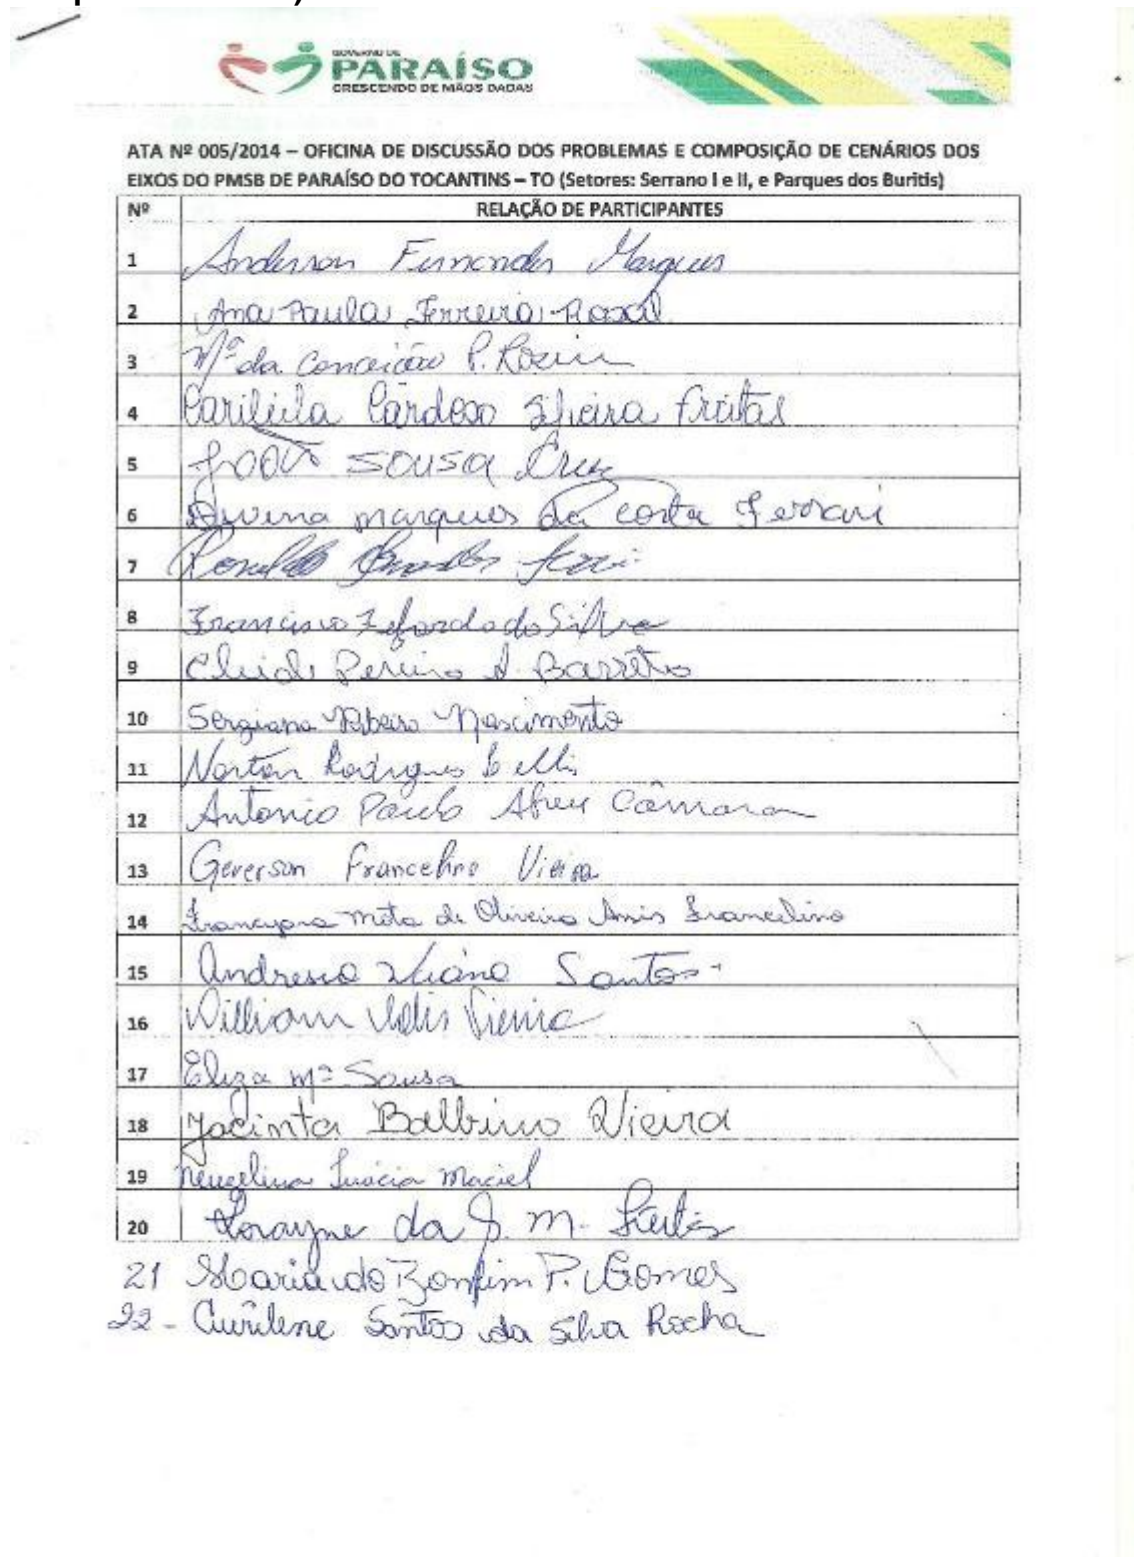 GOVERNO DE
PARAÍSO
CRESCENDO DE MÃOS DADAS
ATA Nº 005/2014 – OFICINA DE DISCUSSÃO DOS PROBLEMAS E COMPOSIÇÃO DE CENÁRIOS DOS
EIXOS DO PMSB DE PARAÍSO DO TOCANTINS – TO (Setores: Serrano I e II, e Parques dos Buritis)
Nº RELAÇÃO DE PARTICIPANTES
1 Anderson Fernandes Marques
2 Ana Paula Ferreira
3 Mª da Conceição P.
4 Cardoso Freitas
5 João Sousa Cruz
6 Divina marques da costa Ferrari
7 Ronaldo
8 Francisco da Silva
9 Pereira Barreto
10 Sergiana Ribeiro Nascimento
11 Norton Rodrigues
12 Antonio Paulo Abreu Câmara
13 Geverson Francelino Vieira
14 mota de Oliveira Francelino
15 Andressa Santos
16 William Vieira
17 Eliza Mª Sousa
18 Jacinta Balbino Vieira
19 Inácia Maciel
20 Lorayne da S. M. Freitas
21 Maria do Bonfim P. Gomes
22 - Santos da Silva Rocha